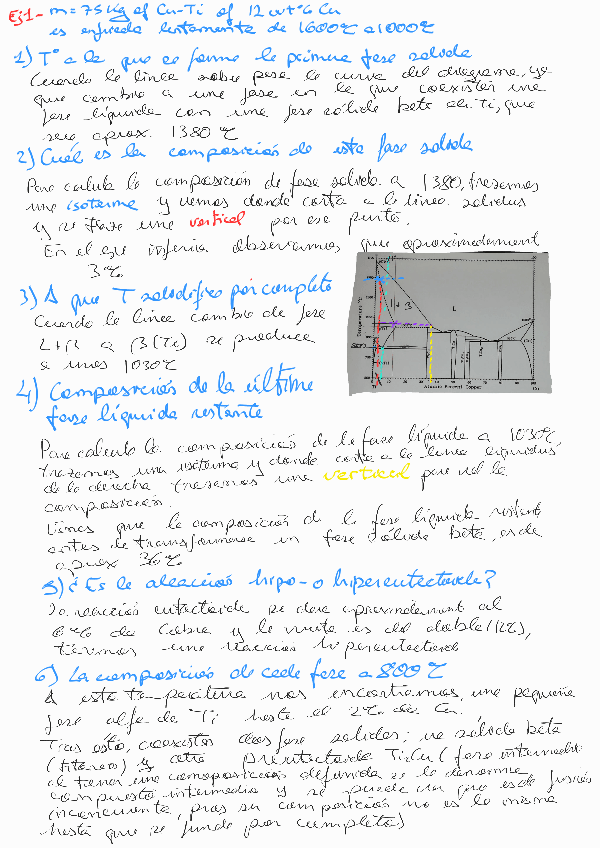 Ej1- m = 75 Kg of Cu-Ti of 12 wt% Cu
es enfriada lentamente de 1600ºC a 1000ºC
1) Tº a la que se forma la primera fase solida
Cuando la linea sobre pasa la curva del diagrama, ya
que cambia a una fase en la que coexisten una
fase liquida con una fase sólida beta de Ti, que
sera aprox. 1380 ºC
2) Cuál es la composición de esta fase solida
Para calcular la composición de fase solida a 1380, trazamos
una isoterma y vemos donde corta a la linea solidus
y se traza una vertical por ese punto.
En el eje inferior observamos que aproximadament
3%
3) A que T solidifica por completo
Cuando la linea cambia de fase
L+β a β(Ti) se produce
a unos 1030ºC
4) Composición de la última
fase líquida restante
Para calcular la composición de la fase líquida a 1030ºC,
trazamos una isoterma y donde corta a la linea liquidus
de la derecha trazamos una vertical para ver la
composición.
Vemos que la composición de la fase líquida restante
antes de transformarse en fase sólida beta, es de
aprox 36%
5) ¿Es la aleación hipo- o hipereutectoide?
La reacción eutectoide se da aproximadament al
6% de Cobre y la nuestra es del doble (12%),
tenemos una reacción hipereutectoide
6) La composición de cada fase a 800ºC
A esta temperatura nos encontramos una pequeña
fase alfa de Ti hasta el 2% de Cu.
Tras esto, coexisten dos fases solidas; una sólida beta
(titanio) y otra Ti2Cu (fase intermedia
al tener una composición definida se le denomina
compuesto intermedio y se puede ver que es de fusión
incongruente, pues su composición no es la misma
hasta que se funde por completo)
L
L+β
Temperature ºC
Atomic Percent Copper
Ti